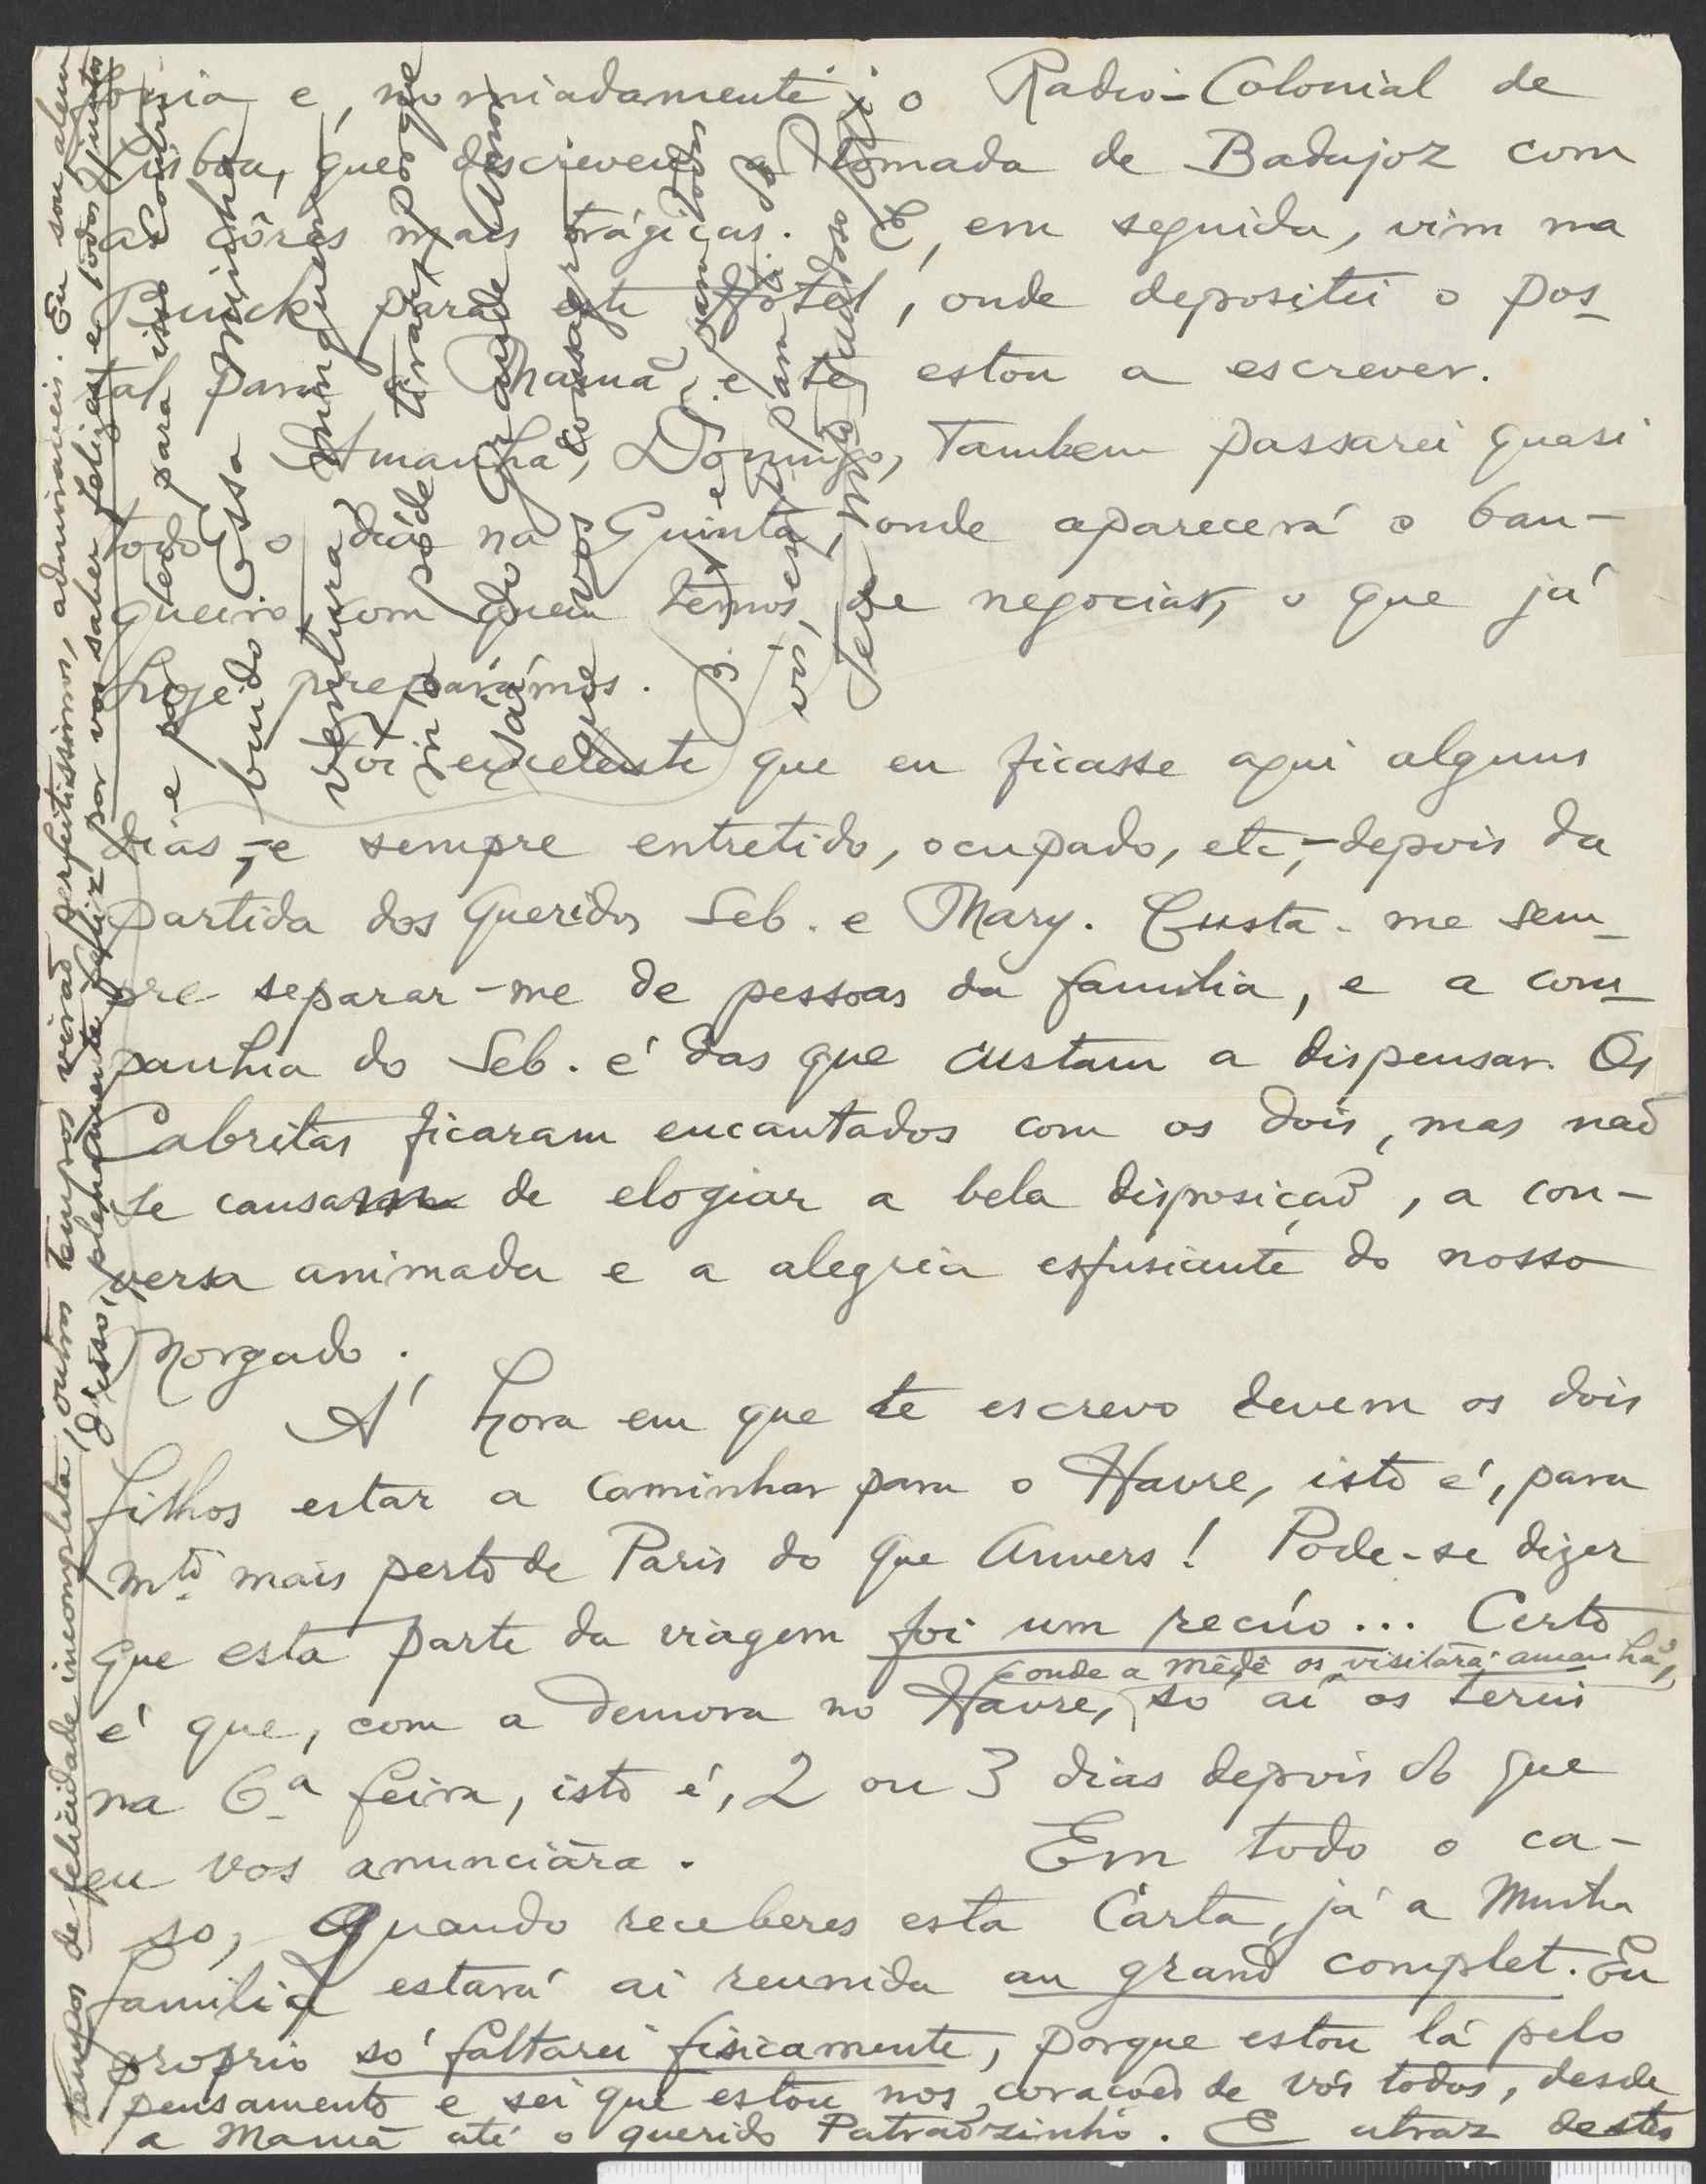 fonia e, nomiadamente, o Radio-Colonial de
Lisboa, que descreveu a tomada de Badajoz com
as côres mais trágicas. E, em seguida, vim na
Buick para este Hotel, onde depositei o pos-
tal para a Mamã, e te estou a escrever.
Amanhã, Domingo, tambem passarei quasi
todo o dia na Quinta, onde aparecerá o ban-
queiro com quem temos de negociar, o que já
hoje preparámos.
Foi excelente que eu ficasse aqui alguns
dias,-e sempre entretido, ocupado, etc,-depois da
partida dos queridos Seb. e Mary. Custa-me sem-
pre separar-me de pessoas da familia, e a com-
panhia do Seb. é das que custam a dispensar. Os
Cabritas ficaram encantados com os dois, mas não
se cansam de elogiar a bela disposição, a con-
versa animada e a alegria esfusiante do nosso
Morgado.
A' hora em que te escrevo devem os dois
filhos estar a caminhar para o Havre, isto é, para
mto. mais perto de Paris do que Anvers! Pode-se dizer
que esta parte da viagem foi um recúo... Certo
onde a Mêdê os visitará amanhã,
é que, com a demora no Havre, só aí os tereis
na 6.a feira, isto é, 2 ou 3 dias depois do que
eu vos anunciára. Em todo o ca-
so, quando receberes esta Carta, já a Minha
Familia estará aí reunida au grand complet. Eu
proprio só faltarei fisicamente, porque estou lá pelo
pensamento e sei que estou nos corações de vós todos, desde
a Mamã até o querido Patrãosinho. E atraz destes
tempos de felicidade incompleta, outros tempos virão perfeitissimos, admiraveis. Eu sou, alem
d'isso, plenamente feliz por vos saber felizes e todos juntos
e por ter para isso contri-
buido Essa Minha
ventura ninguem
m'a póde tirar, porque
vem do Grande Amor
que vos consagro.
B. e para todos
vós,
Teu Mto Saudoso